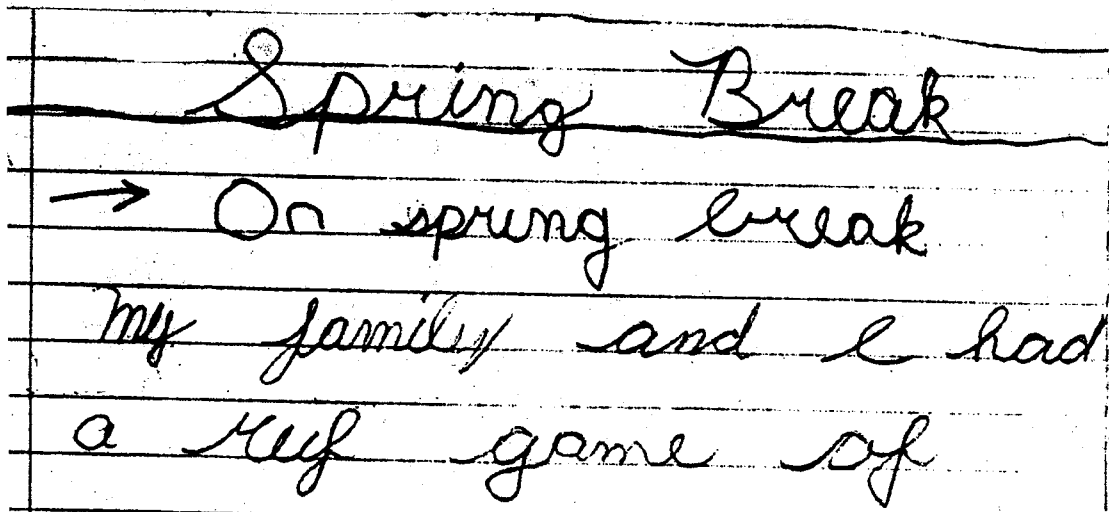 Spring Break
→ On spring break
my family and I had
a ruf game of